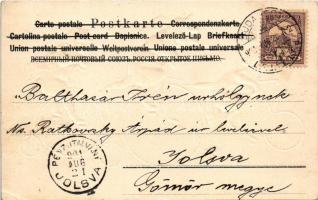 Carte postale Postkarte Correspondenzkarte
Cartolina postale Post card Dopisnice. Levelező-Lap Briefkaart
Union postale universelle Weltpostverein Unione postale universale
ВСЕМІРНЫЙ ПОЧТОВЫЙ СОЮЗЪ. РОССІЯ. ОТКРЫТОЕ ПИСЬМО.
Balthasar Irén urhölgynek
Ns. Ratkovszky Árpád ur leveleivel
Jolsva
Gömör megye
901
AUG
21
JOLSVA